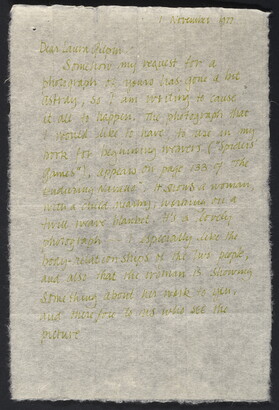 1 November 1977
Dear Laura Gilpin:
Somehow my request for a
photograph of yours has gone a bit
astray, so I am writing to cause
it all to happen. The photograph that
I would like to have to use in my
book for beginning weavers ("Spiders'
Games"), appears on page 133 of The
Enduring Navaho. It shows a woman,
with a child nearby, working on a
twill weave blanket. It's a lovely
photograph I especially like the
body-relationships of the two people,
and also that the woman is showing
something about her work to you,
and therefore to us who see the
picture